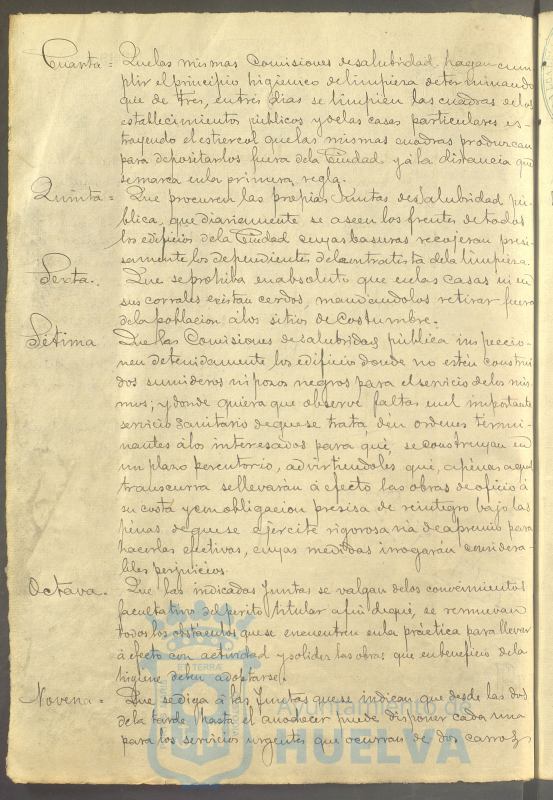 Cuarta = Que las mismas Comisiones de salubridad hagan cum
plir el principio higienico de limpieza determinando
que de tres, en tres dias se limpien las cuadras de los
establecimientos publicos y de las casas particulares es-
trayendo el estiercol que las mismas cuadras produzcan
para depositarlos fuera de la Ciudad y á la distancia que
se marca en la primera regla.
Quinta = Que procuren las propias Juntas de salubridad pú-
blica, que diariamente se aseen los frentes de todos
los edificios de la Ciudad cuyas basuras recojeran presi-
samente los dependientes del contratista de la limpieza.
Sexta. Que se prohiba en absoluto que en las casas ni en
sus corrales existan cerdos, mandandolos retirar fuera
de la poblacion á los sitios de costumbre.
Sétima Que las Comisiones de salubridad pública inspeccio-
nen detenidamente los edificios donde no estén construi
dos sumideros ni pozos negros para el servicio de los mis
mos; y donde quiera que observe faltas en el importante
servicio Sanitario de que se trata, dén ordenes termi-
nantes á los interesados para que, se construyan en
un plazo perentorio, advirtiendoles que, apénas aquel
transcurra se llevarán á efecto las obras de oficio á
su costa y en obligacion presisa de reintegro bajo las
penas de que se ejercite rigorosa via de apremio para
hacerlas efectivas, cuyas medidas irrogarán considera-
bles perjuicios.
Octava. Que las indicadas Juntas se valgan de los conocimientos
facultativo del perito titular a fin de que, se remuevan
todos los obstáculos que se encuentren en la práctica para llevar
á efecto con actividad y solidez las obras que en beneficio de la
higiene deben adoptarse.
Novena = Que se diga á las Juntas que se indican que desde las dos
de la tarde hasta el anochecer puede disponer cada una
para los servicios urgentes que ocurran de dos carros
ET TERRÆ
Ayuntamiento de
HUELVA